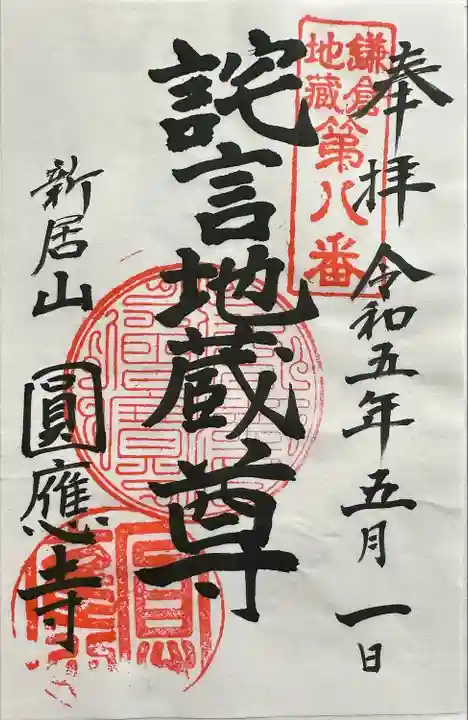 奉拝 令和五年五月一日
鎌倉
地蔵
第八番
詫言地蔵尊
新居山 圓應寺